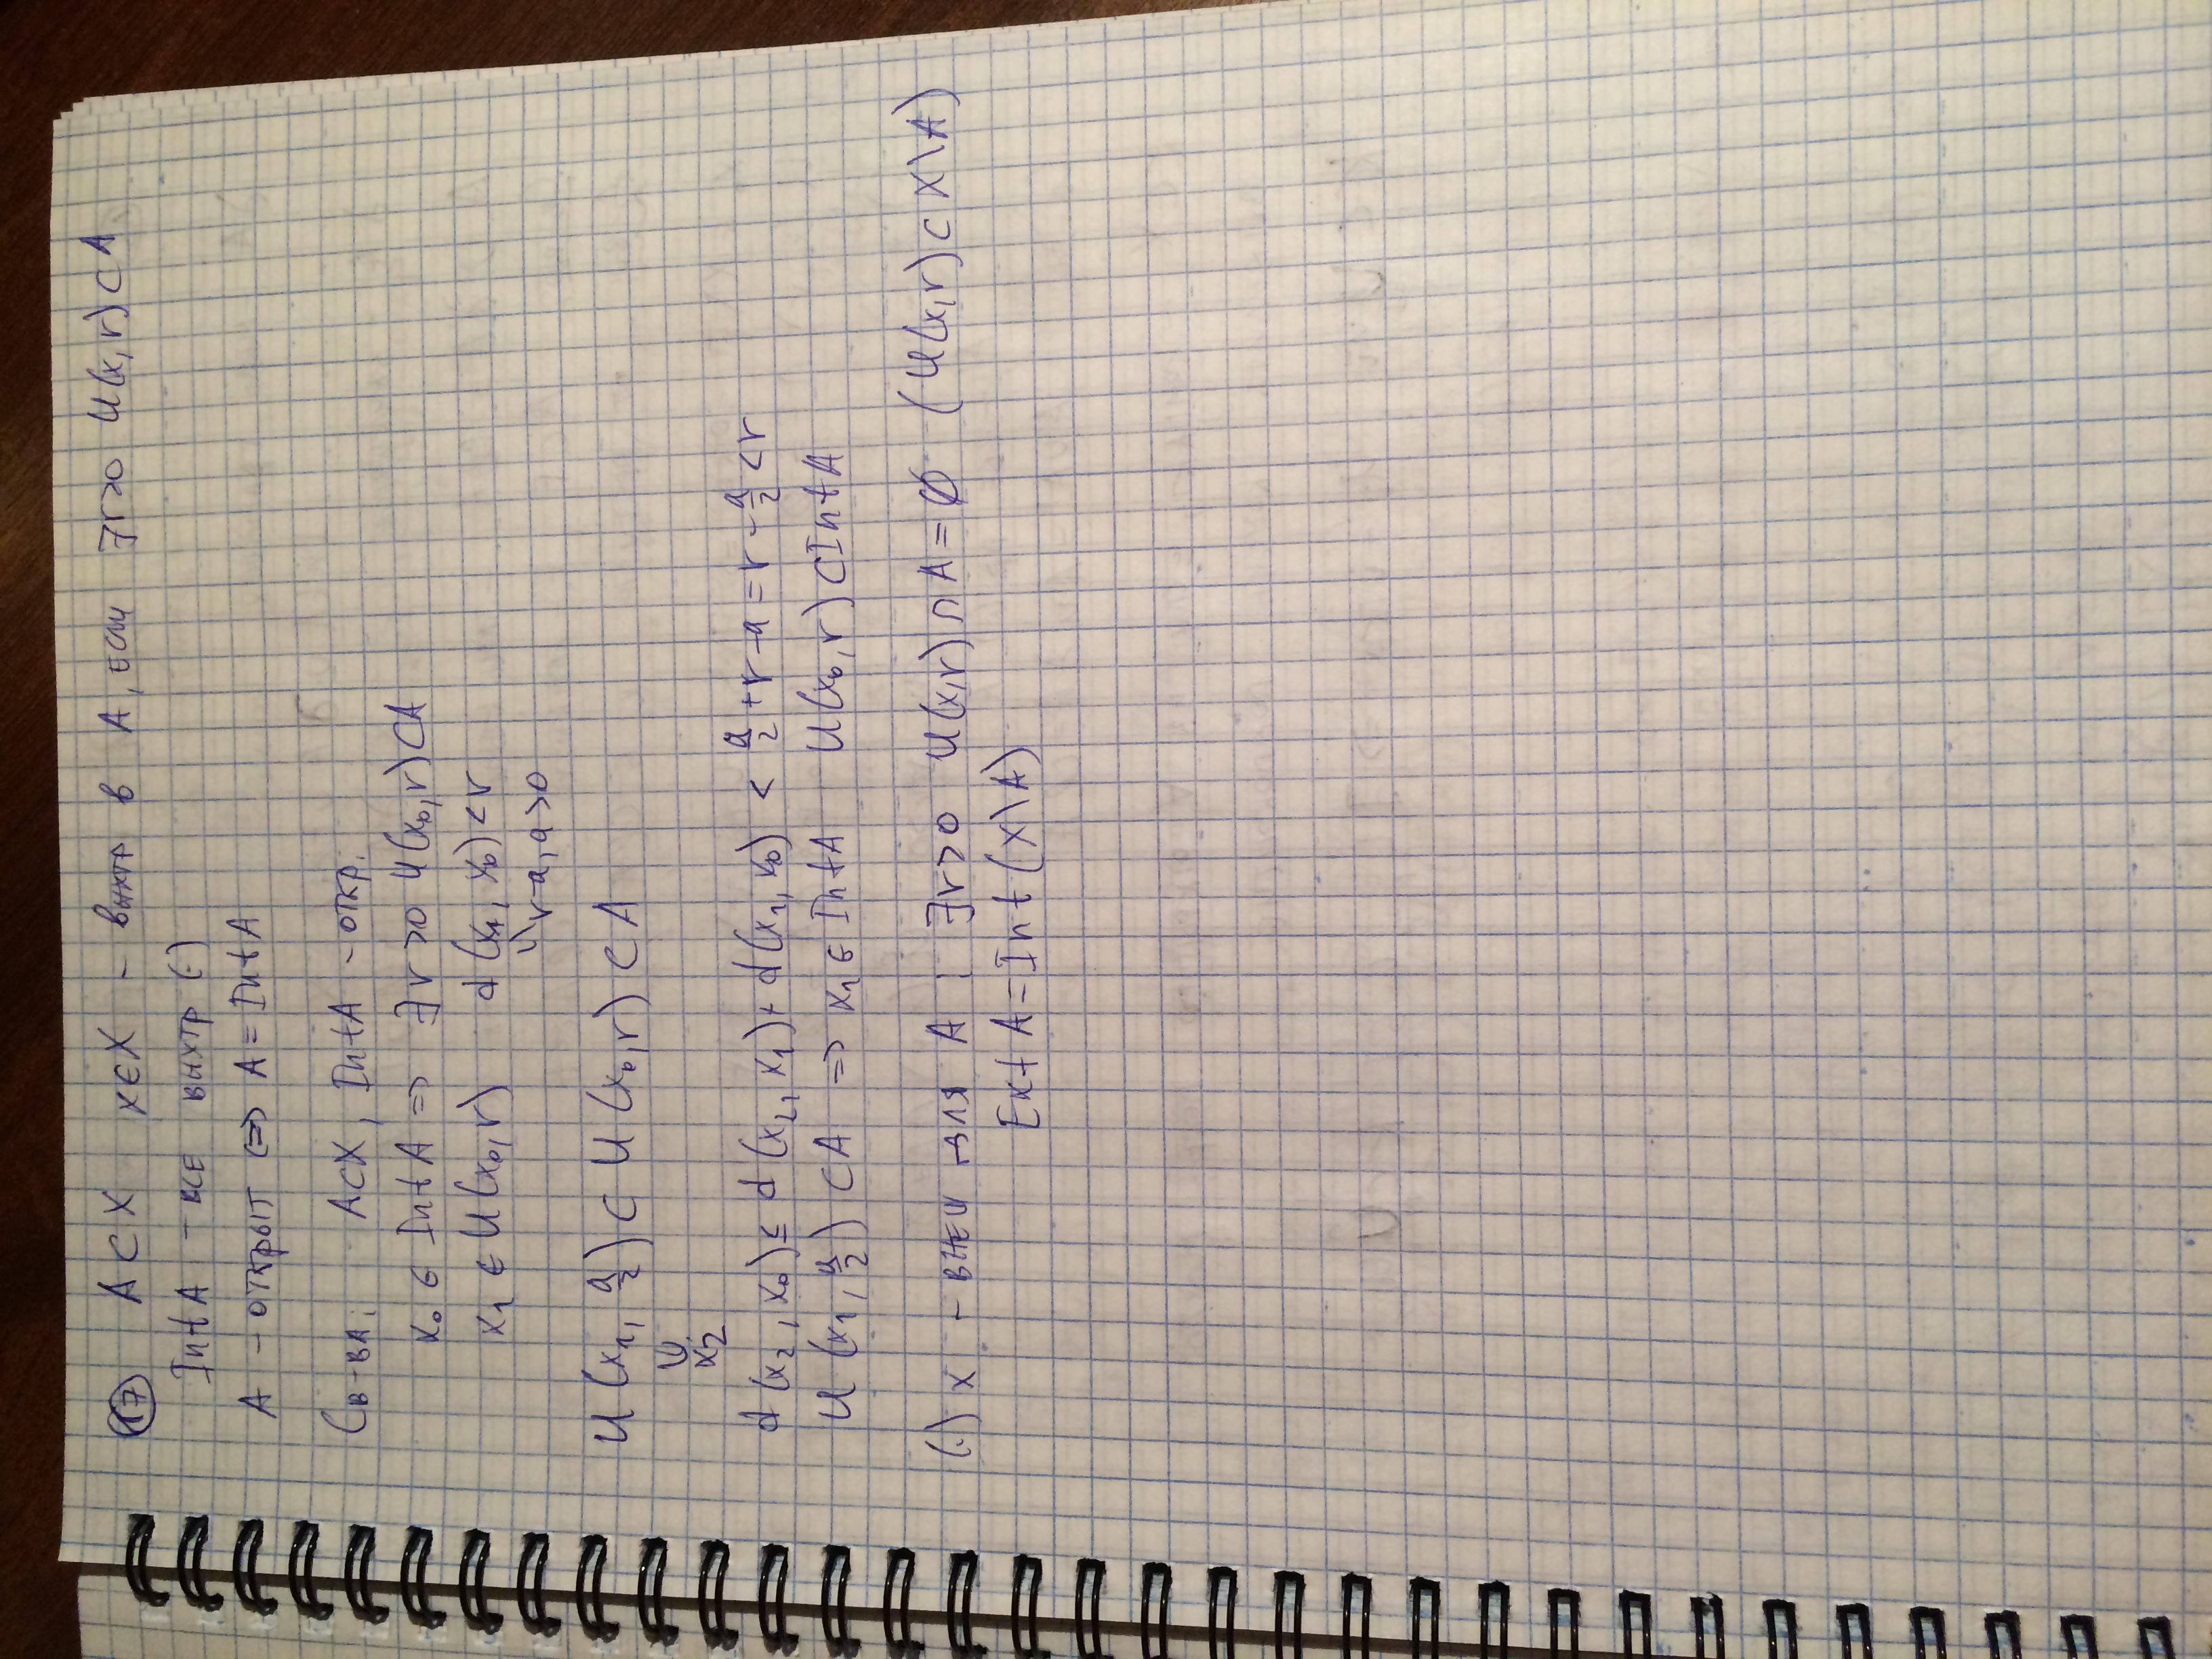 17 A ⊂ X x ∈ X - внутр в A, если ∃r>0 U(x, r) ⊂ A
Int A - все внутр (·)
A - открыт ⇔ A = Int A
Св-ва: A ⊂ X, Int A - откр.
x₀ ∈ Int A ⇒ ∃ r > 0 U(x₀, r) ⊂ A
x₁ ∈ U(x₀, r) d(x₁, x₀) < r
r-a, a>0
U(x₁, a/2) ⊂ U(x₀, r) ⊂ A
∪
x₂
d(x₂, x₀) ≤ d(x₂, x₁) + d(x₁, x₀) < a/2 + r - a = r - a/2 < r
U(x₁, a/2) ⊂ A ⇒ x₁ ∈ Int A U(x₀, r) ⊂ Int A
(·) x - внеш для A : ∃r>0 U(x, r) ∩ A = ∅ (U(x, r) ⊂ X \ A)
Ext A = Int (X \ A)